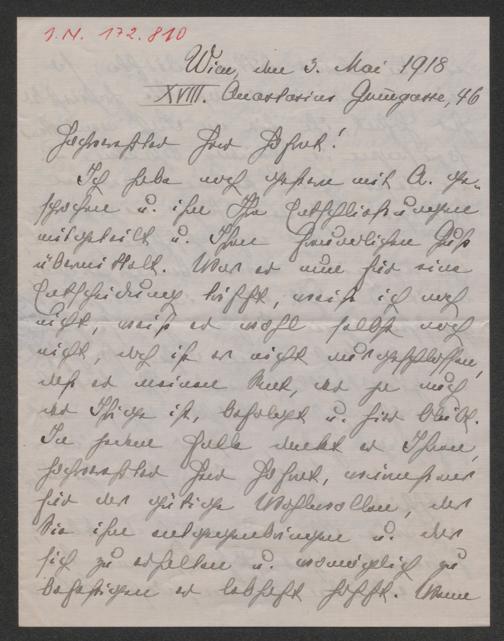 I.N. 172.810
Wien, den 3. Mai 1918
XVIII. Anastasius Grüngasse, 46
Hochverehrter Herr Hofrat!
Ich habe noch gestern mit A. ge-
sprochen u. ihm Ihre Entschließungen
mitgeteilt u. Ihren freundlichen Gruß
übermittelt. Was er nun für eine
Entscheidung trifft, weiß ich noch
nicht, weiß er wohl selbst noch
nicht, doch ist es nicht ausgeschlossen,
daß er meinen Rat, der ja auch
der Ihrige ist, befolgt u. hier bleibt.
In jedem Falle dankt er Ihnen,
hochverehrter Herr Hofrat,
für das gütige Wohlwollen, das
Sie ihm entgegenbringen u. das
sich zu erhalten u. womöglich zu
befestigen er lebhaft hofft. Wenn